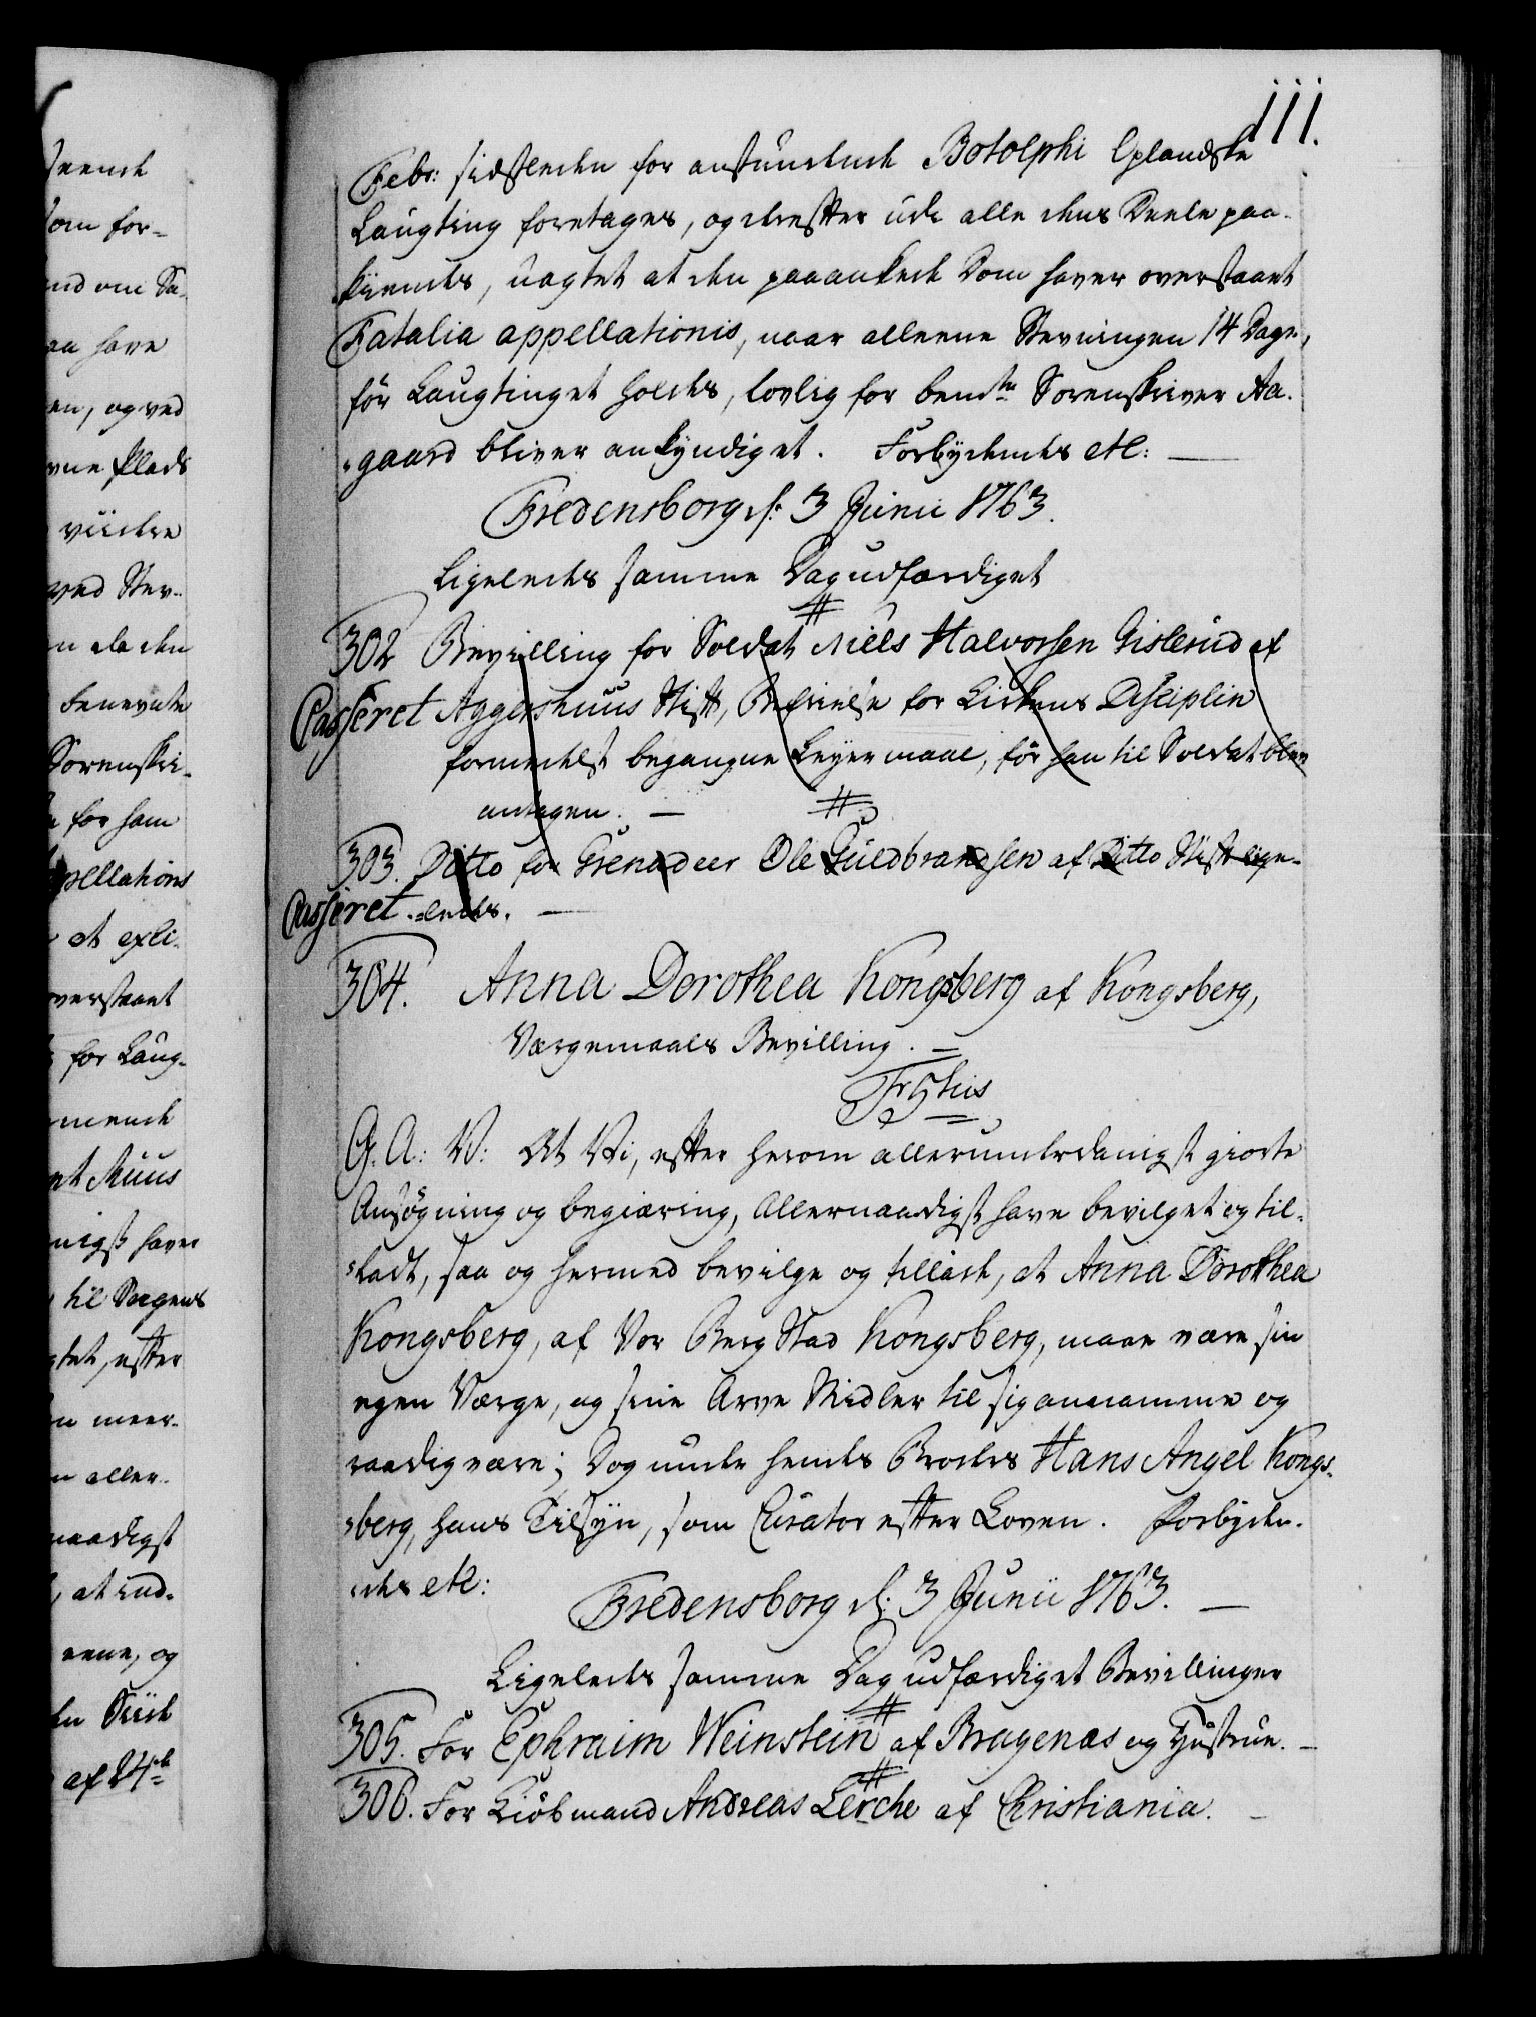 111.
Febr: sidstleden for anstundende Botolphi Oplandske
Laugting foretages, og derefter udi alle dens Deele paa-
kiendes, uagtet at den paaankede Dom haver overstaaet
Fatalia appellationis, naar alleene Stevningen 14 Dage,
för Laugtinget holdes, lovlig for bemte Sorenskriver Aa-
-gaard bliver ankyndiget. Forbydendes etc:
Fredensborg d: 3 Junii 1763.
Ligeledes samme Dag udfærdiget
302 Bevilling for Soldat Niels Halvorsen Gislerud af
Casseret Aggershuus Stift, Befrielse for Kirkens Disciplin
formedelst begangne Leyermaal, för han til Soldat blev
antagen.
303. Ditto for Grenadeer Ole Guldbrandsen af Ditto Stift lige-
Casseret -ledes.
304. Anna Dorothea Kongsberg af Kongsberg,
Værgemaals Bevilling.
Fr 5tus
G. A: V: At Vi, efter herom allerunderdanigst giorte
Ansögning og begiæring, Allernaadigst have bevilget og til-
-stadt, saa og hermed bevilge og tillade, at Anna Dorothea
Kongsberg, af Vor Berg Stad Kongsberg, maae være sin
egen Værge, og sine Arve Midler til sig annamme og
raadig være; Dog under hendes Broders Hans Angel Kongs-
-berg, hans Tilsyn, som Curator efter Loven. Forbyden-
-des etc:
Fredensborg d: 3 Junii 1763.
Ligeledes samme Dag udfærdiget Bevillinger
305. For Ephraim Weinstein af Bragenæs og Hustrue.
306. For Kiöbmand Andreas Lerche af Christiania.